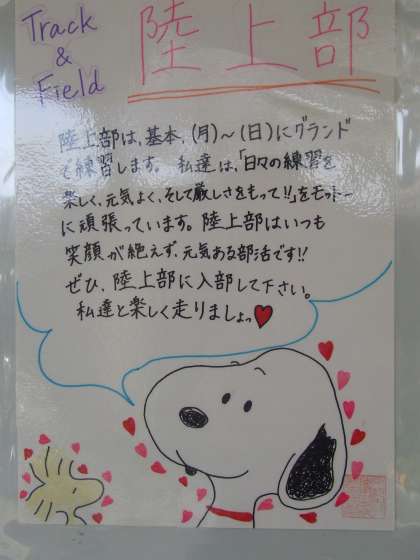 Track
&
Field
陸上部
陸上部は、基本、(月)~(日)にグランド
で練習します。私達は、「日々の練習を
楽しく、元気よく、そして厳しさをもって!!」をモットー
に頑張っています。陸上部はいつも
笑顔が絶えず、元気ある部活です!!
ぜひ、陸上部に入部して下さい。
私達と楽しく走りましょっ